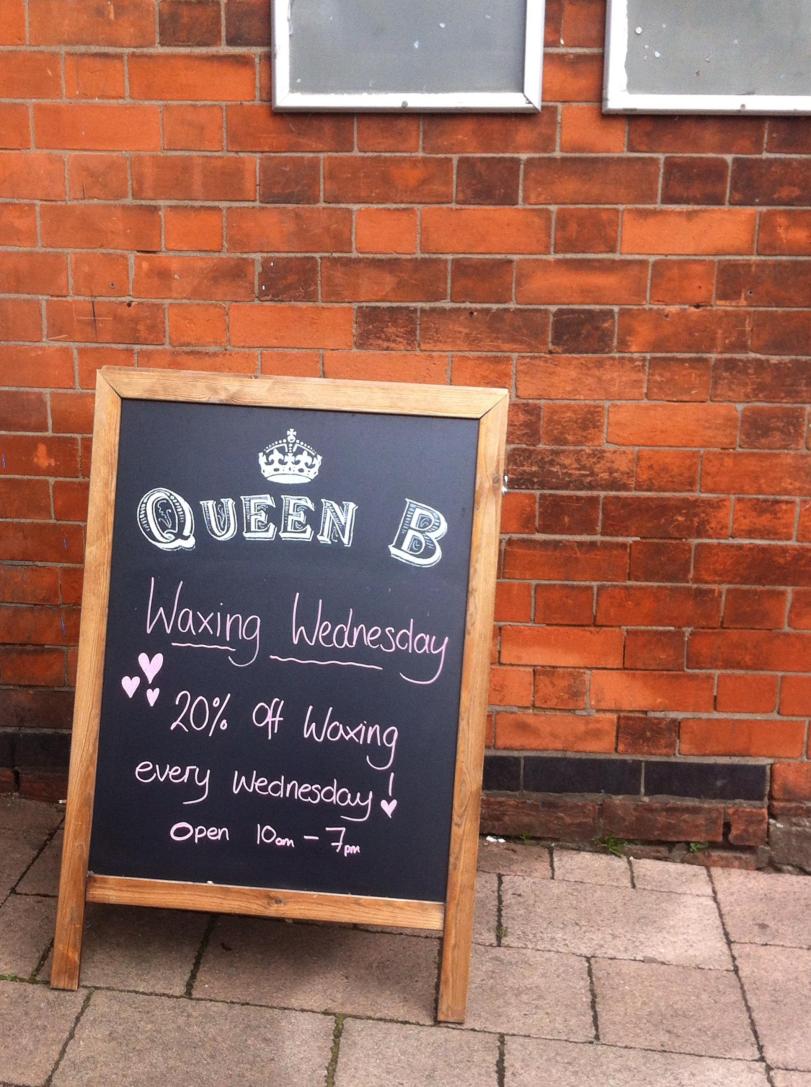 QUEEN B
Waxing Wednesday
20% off Waxing
every Wednesday!
Open 10am - 7pm